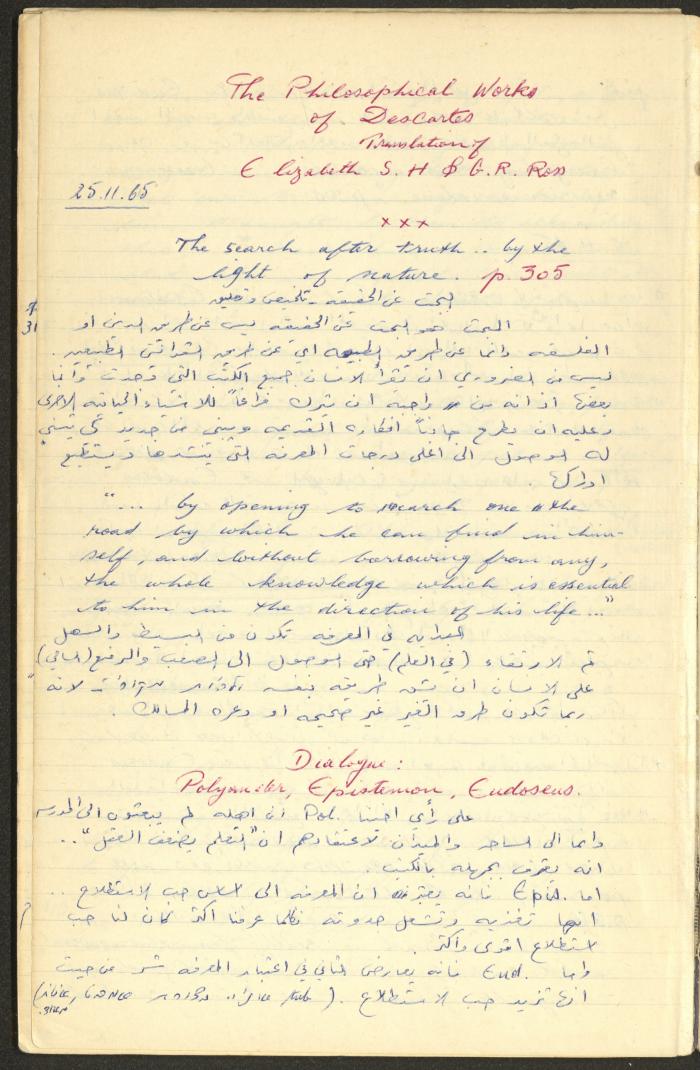 The Philosophical Works
of Descartes
Translation of
Elizabeth S. H & G. R. Ross
25.11.65
x x x
The search after truth .. by the
light of nature. p. 305
البحث عن الحقيقة - تلخيص وتعليق
31
البحث هو البحث عن الحقيقة ليس عن طريق الدين او
الفلسفة وانما عن طريق الطبيعة اي عن طريق القوانين الطبيعية .
ليس من الضروري ان يقرأ الانسان جميع الكتب التي وجدت وانما
بعضها اذ انه من واجبه ان يترك فراغاً للاشياء الحياتية الاخرى
وعليه ان يطرح جانباً افكاره القديمة ويبني من جديد كي يتسنى
له الوصول الى اعلى درجات المعرفة التي ينشدها ويستطيع
ادراكها .
"... by opening to each one the
road by which he can find in him-
self, and without borrowing from any,
the whole knowledge which is essential
to him in the direction of his life ..."
البداية في المعرفة تكون من البسيط والسهل
ثم الارتقاء (في العلم) حتى الوصول الى الصعب والرفيع (السامي)
على الانسان ان يشق طريقه بنفسه لانه
ربما تكون طرق الغير غير صحيحة او وعرة المسالك .
Dialogue :
Polyander, Epistemon, Eudoxus.
على رأي اخينا Pol. ان اهله لم يبعثوه الى المدرسة
وانما الى الساحة والميدان لاعتقادهم ان "التعلم يضعف العقل" ..
انه يعترف بجهله بالكتب .
اما Epis. فانه يعترف ان المعرفة الى اساس حب الاستطلاع ..
انها تغذيه وتشعل جذوته فكلما عرفنا اكثر كان لنا حب
استطلاع اقوى واكثر .
واما End. فانه يعارض الثاني في اعتبار المعرفة شر من حيث
انها تزيد حب الاستطلاع . (